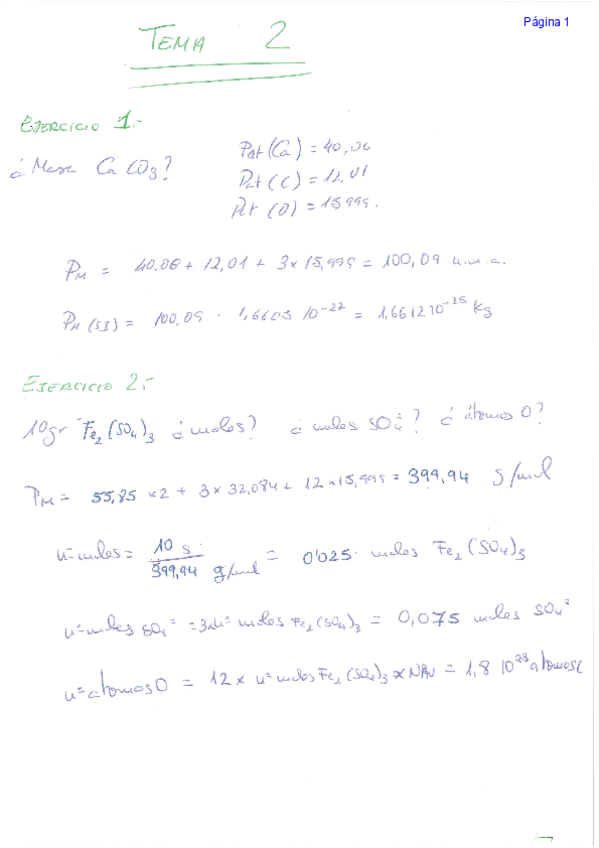 Página 1
TEMA 2
EJERCICIO 1.-
¿Masa CaCO3?
Pat (Ca) = 40,06
Pat (C) = 12,01
Pat (O) = 15,999.
PM = 40,08 + 12,01 + 3 x 15,999 = 100,09 u.m.a.
PM (SI) = 100,09 · 1,6605 10^-27 = 1,6612 10^-25 kg
EJERCICIO 2.-
10gr Fe2(SO4)3 ¿moles? ¿moles SO4=? ¿átomos O?
PM = 55,85 x2 + 3 x 32,084 + 12 x 15,999 = 399,94 g/mol
nº moles = 10 g / 399,94 g/mol = 0'025 moles Fe2(SO4)3
nº moles SO4= = 3x nº moles Fe2(SO4)3 = 0,075 moles SO4=
nº atomos O = 12 x nº moles Fe2(SO4)3 x NAv = 1,8 10^23 atomos